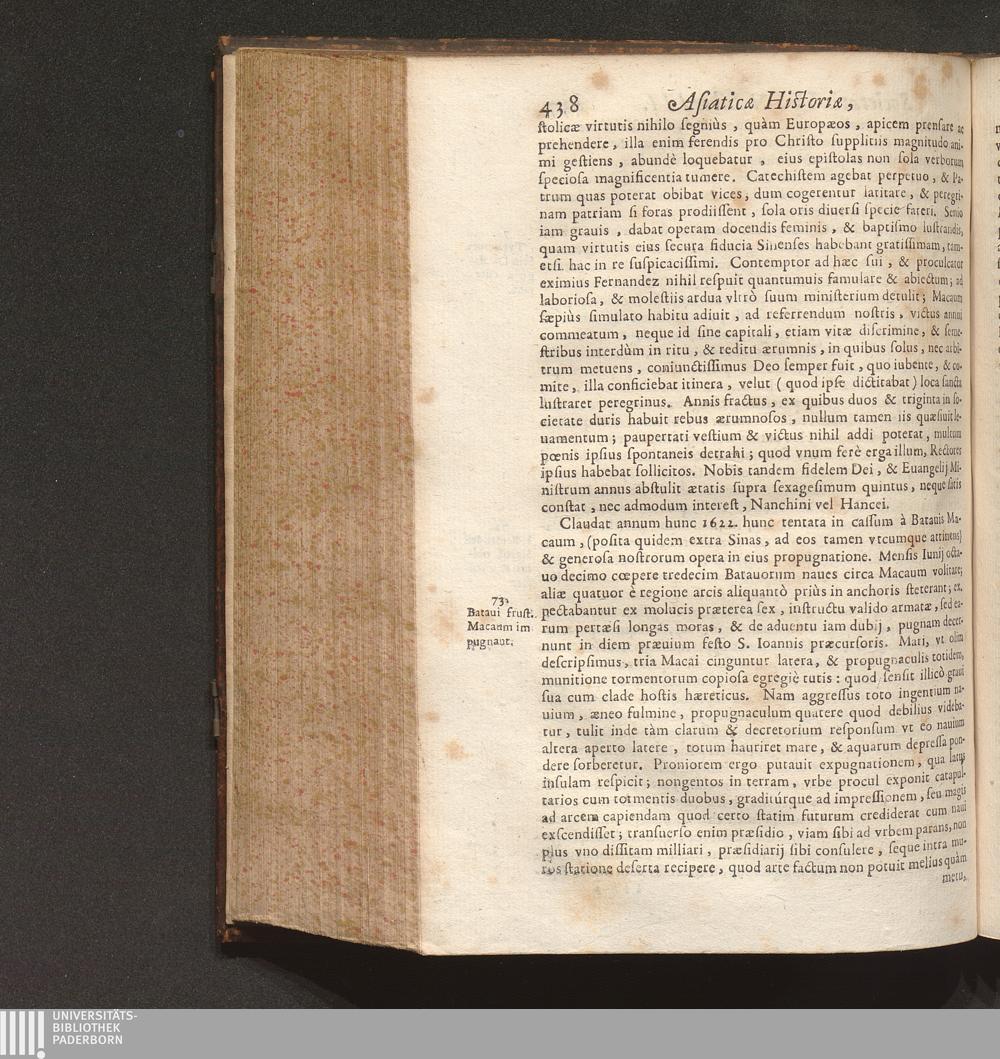 438 Asiaticæ Historiæ,
stolicæ virtutis nihilo segniùs, quàm Europæos, apicem prensare ac
prehendere, illa enim ferendis pro Christo suppliciis magnitudo ani-
mi gestiens, abundè loquebatur, eius epistolas non sola verborum
speciosa magnificentia tumere. Catechistem agebat perpetuo, & Pa-
trum quas poterat obibat vices, dum cogerentur latitare, & peregri-
nam patriam si foras prodiissent, sola oris diuersi specie fateri. Senio
iam grauis, dabat operam docendis feminis, & baptismo lustrandis,
quam virtutis eius secura fiducia Sinenses habebant gratissimam, tam-
etsi hac in re suspicacissimi. Contemptor ad hæc sui, & proculcator
eximius Fernandez nihil respuit quantumuis famulare & abiectum; ad
laboriosa, & molestiis ardua vltrò suum ministerium detulit; Macaum
sæpiùs simulato habitu adiuit, ad referrendum nostris, victus annui
commeatum, neque id sine capitali, etiam vitæ discrimine, & seme-
stribus interdùm in ritu, & reditu ærumnis, in quibus solus, nec arbi-
trum metuens, coniunctissimus Deo semper fuit, quo iubente, & co-
mite, illa conficiebat itinera, velut (quod ipse dictitabat) loca sancta
lustraret peregrinus. Annis fractus, ex quibus duos & triginta in so-
cietate duris habuit rebus ærumnosos, nullum tamen iis quæsiuit le-
uamentum; paupertati vestium & victus nihil addi poterat, multum
pœnis ipsius spontaneis detrahi; quod vnum ferè erga illum, Rectores
ipsius habebat sollicitos. Nobis tandem fidelem Dei, & Euangelij Mi-
nistrum annus abstulit ætatis supra sexagesimum quintus, neque satis
constat, nec admodum interest, Nanchini vel Hancei.
Claudat annum hunc 1622. hunc tentata in cassum à Batauis Ma-
caum, (posita quidem extra Sinas, ad eos tamen vtcumque attinens)
& generosa nostrorum opera in eius propugnatione. Mensis Iunij octa-
uo decimo cœpere tredecim Batauorum naues circa Macaum volitare;
aliæ quatuor è regione arcis aliquantò priùs in anchoris steterant; ex-
73.
Bataui frust.
Macaum im
pugnant.
pectabantur ex molucis præterea sex, instructu valido armatæ, sed ea-
rum pertæsi longas moras, & de aduentu iam dubij, pugnam decer-
nunt in diem præuium festo S. Ioannis præcursoris. Mari, vt olim
descripsimus, tria Macai cinguntur latera, & propugnaculis totidem,
munitione tormentorum copiosa egregiè tutis: quod sensit illicò graui
sua cum clade hostis hæreticus. Nam aggressus toto ingentium na-
uium, æneo fulmine, propugnaculum quatere quod debilius videba-
tur, tulit inde tàm clarum & decretorium responsum vt eo nauium
altera aperto latere, totum hauriret mare, & aquarum depressa pon-
dere sorberetur. Proniorem ergo putauit expugnationem, qua latus
insulam respicit; nongentos in terram, vrbe procul exponit catapul-
tarios cum totmentis duobus, graditúrque ad impressionem, seu magis
ad arcem capiendam quod certo statim futurum crediderat cum naui
exscendisset; transuerso enim præsidio, viam sibi ad vrbem parans, non
plus vno dissitam milliari, præsidiarij sibi consulere, seque intra mu-
ros statione deserta recipere, quod arte factum non potuit melius quàm
metu,
UNIVERSITÄTS-
BIBLIOTHEK
PADERBORN